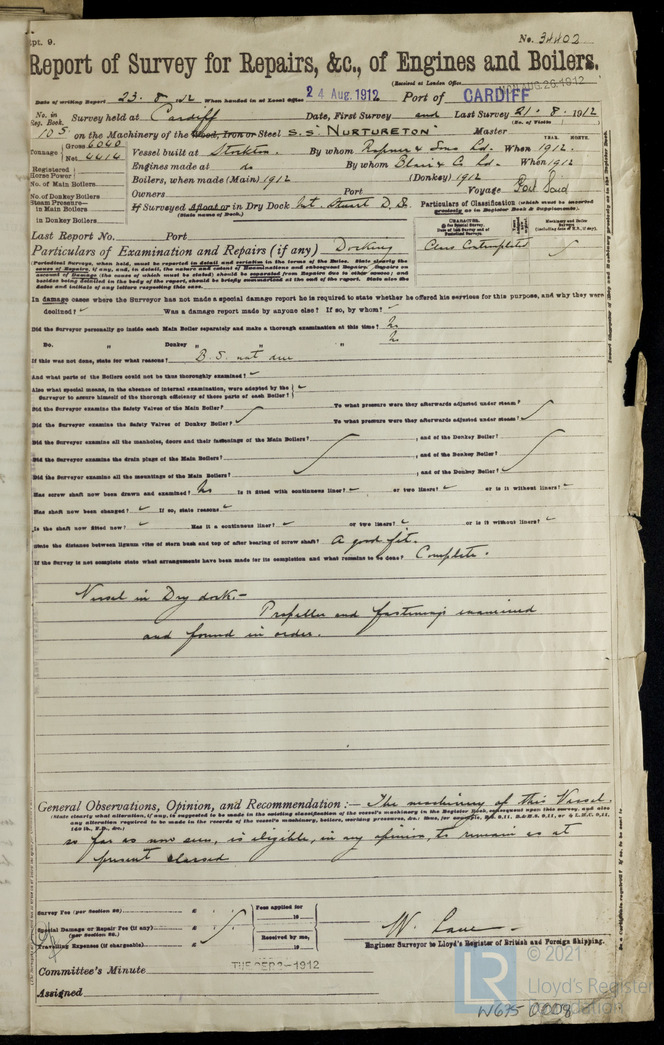 Rpt. 9.
No. 34402
Report of Survey for Repairs, &c., of Engines and Boilers.
(Received at London Office MON. AUG. 26. 1912
Date of writing Report 23. 8. 12 When handed in at Local Office 24 Aug. 1912 Port of CARDIFF
No. in Reg. Book. Survey held at Cardiff Date, First Survey and Last Survey 21. 8. 1912
(No. of Visits )
105 on the Machinery of the Wood, Iron or Steel S.S. "NURTURETON" Master
Tonnage Gross 6040 Net 4414
YEAR. MONTH.
Vessel built at Stockton By whom Ropner & Sons Ld. When 1912.
Engines made at do By whom Blair & Co Ld. When 1912
Registered Horse Power
Boilers, when made (Main) 1912 (Donkey) 1912
No. of Main Boilers
Owners Port Voyage Port Said
No. of Donkey Boilers
Steam Pressure— in Main Boilers
If Surveyed Afloat or in Dry Dock Mt. Stuart D. D.
(State name of Dock.)
Particulars of Classification (which must be inserted precisely as in Register Book & Supplements).
in Donkey Boilers
Last Report No. Port
Particulars of Examination and Repairs (if any) Docking
Class Contemplated
In damage cases where the Surveyor has not made a special damage report he is required to state whether he offered his services for this purpose, and why they were
declined? Was a damage report made by anyone else? If so, by whom?
Did the Surveyor personally go inside each Main Boiler separately and make a thorough examination at this time? No
Do. " Donkey " " " No
If this was not done, state for what reasons? B.S. not due
And what parts of the Boilers could not be thus thoroughly examined?
Also what special means, in the absence of internal examination, were adopted by the
Surveyor to assure himself of the thorough efficiency of those parts of each Boiler?
Did the Surveyor examine the Safety Valves of the Main Boiler? To what pressure were they afterwards adjusted under steam?
Did the Surveyor examine the Safety Valves of Donkey Boiler? To what pressure were they afterwards adjusted under steam?
Did the Surveyor examine all the manholes, doors and their fastenings of the Main Boilers? ; and of the Donkey Boiler?
Did the Surveyor examine the drain plugs of the Main Boilers? ; and of the Donkey Boiler?
Did the Surveyor examine all the mountings of the Main Boilers? ; and of the Donkey Boiler?
Has screw shaft now been drawn and examined? No Is it fitted with continuous liner? or two liners? or is it without liners?
Has shaft now been changed? If so, state reasons
Is the shaft now fitted new? Has it a continuous liner? or two liners? or is it without liners?
State the distance between lignum vitæ of stern bush and top of after bearing of screw shaft? A good fit.
If the Survey is not complete state what arrangements have been made for its completion and what remains to be done? Complete.
Vessel in Dry dock.—
Propeller and fastenings examined
and found in order.
General Observations, Opinion, and Recommendation:— The machinery of this Vessel.
(State clearly what alteration, if any, is suggested to be made in the existing classification of the vessel's machinery in the Register Book, consequent upon this survey, and also
any alteration required to be made in the records of the vessel's machinery, boilers, working pressures, &c.
so far as now seen, is eligible, in my opinion, to remain as at
present classed
Survey Fee (per Section 28) £
Fees applied for 19
Special Damage or Repair Fee (if any) £
(per Section 28.)
Received by me, 19
Travelling Expenses (if chargeable) £
W. Lane
Engineer Surveyor to Lloyd's Register of British and Foreign Shipping.
Committee's Minute TUE. SEP. 3-1912
Assigned
LR
© 2021
Lloyd's Register
Foundation
W675 0008